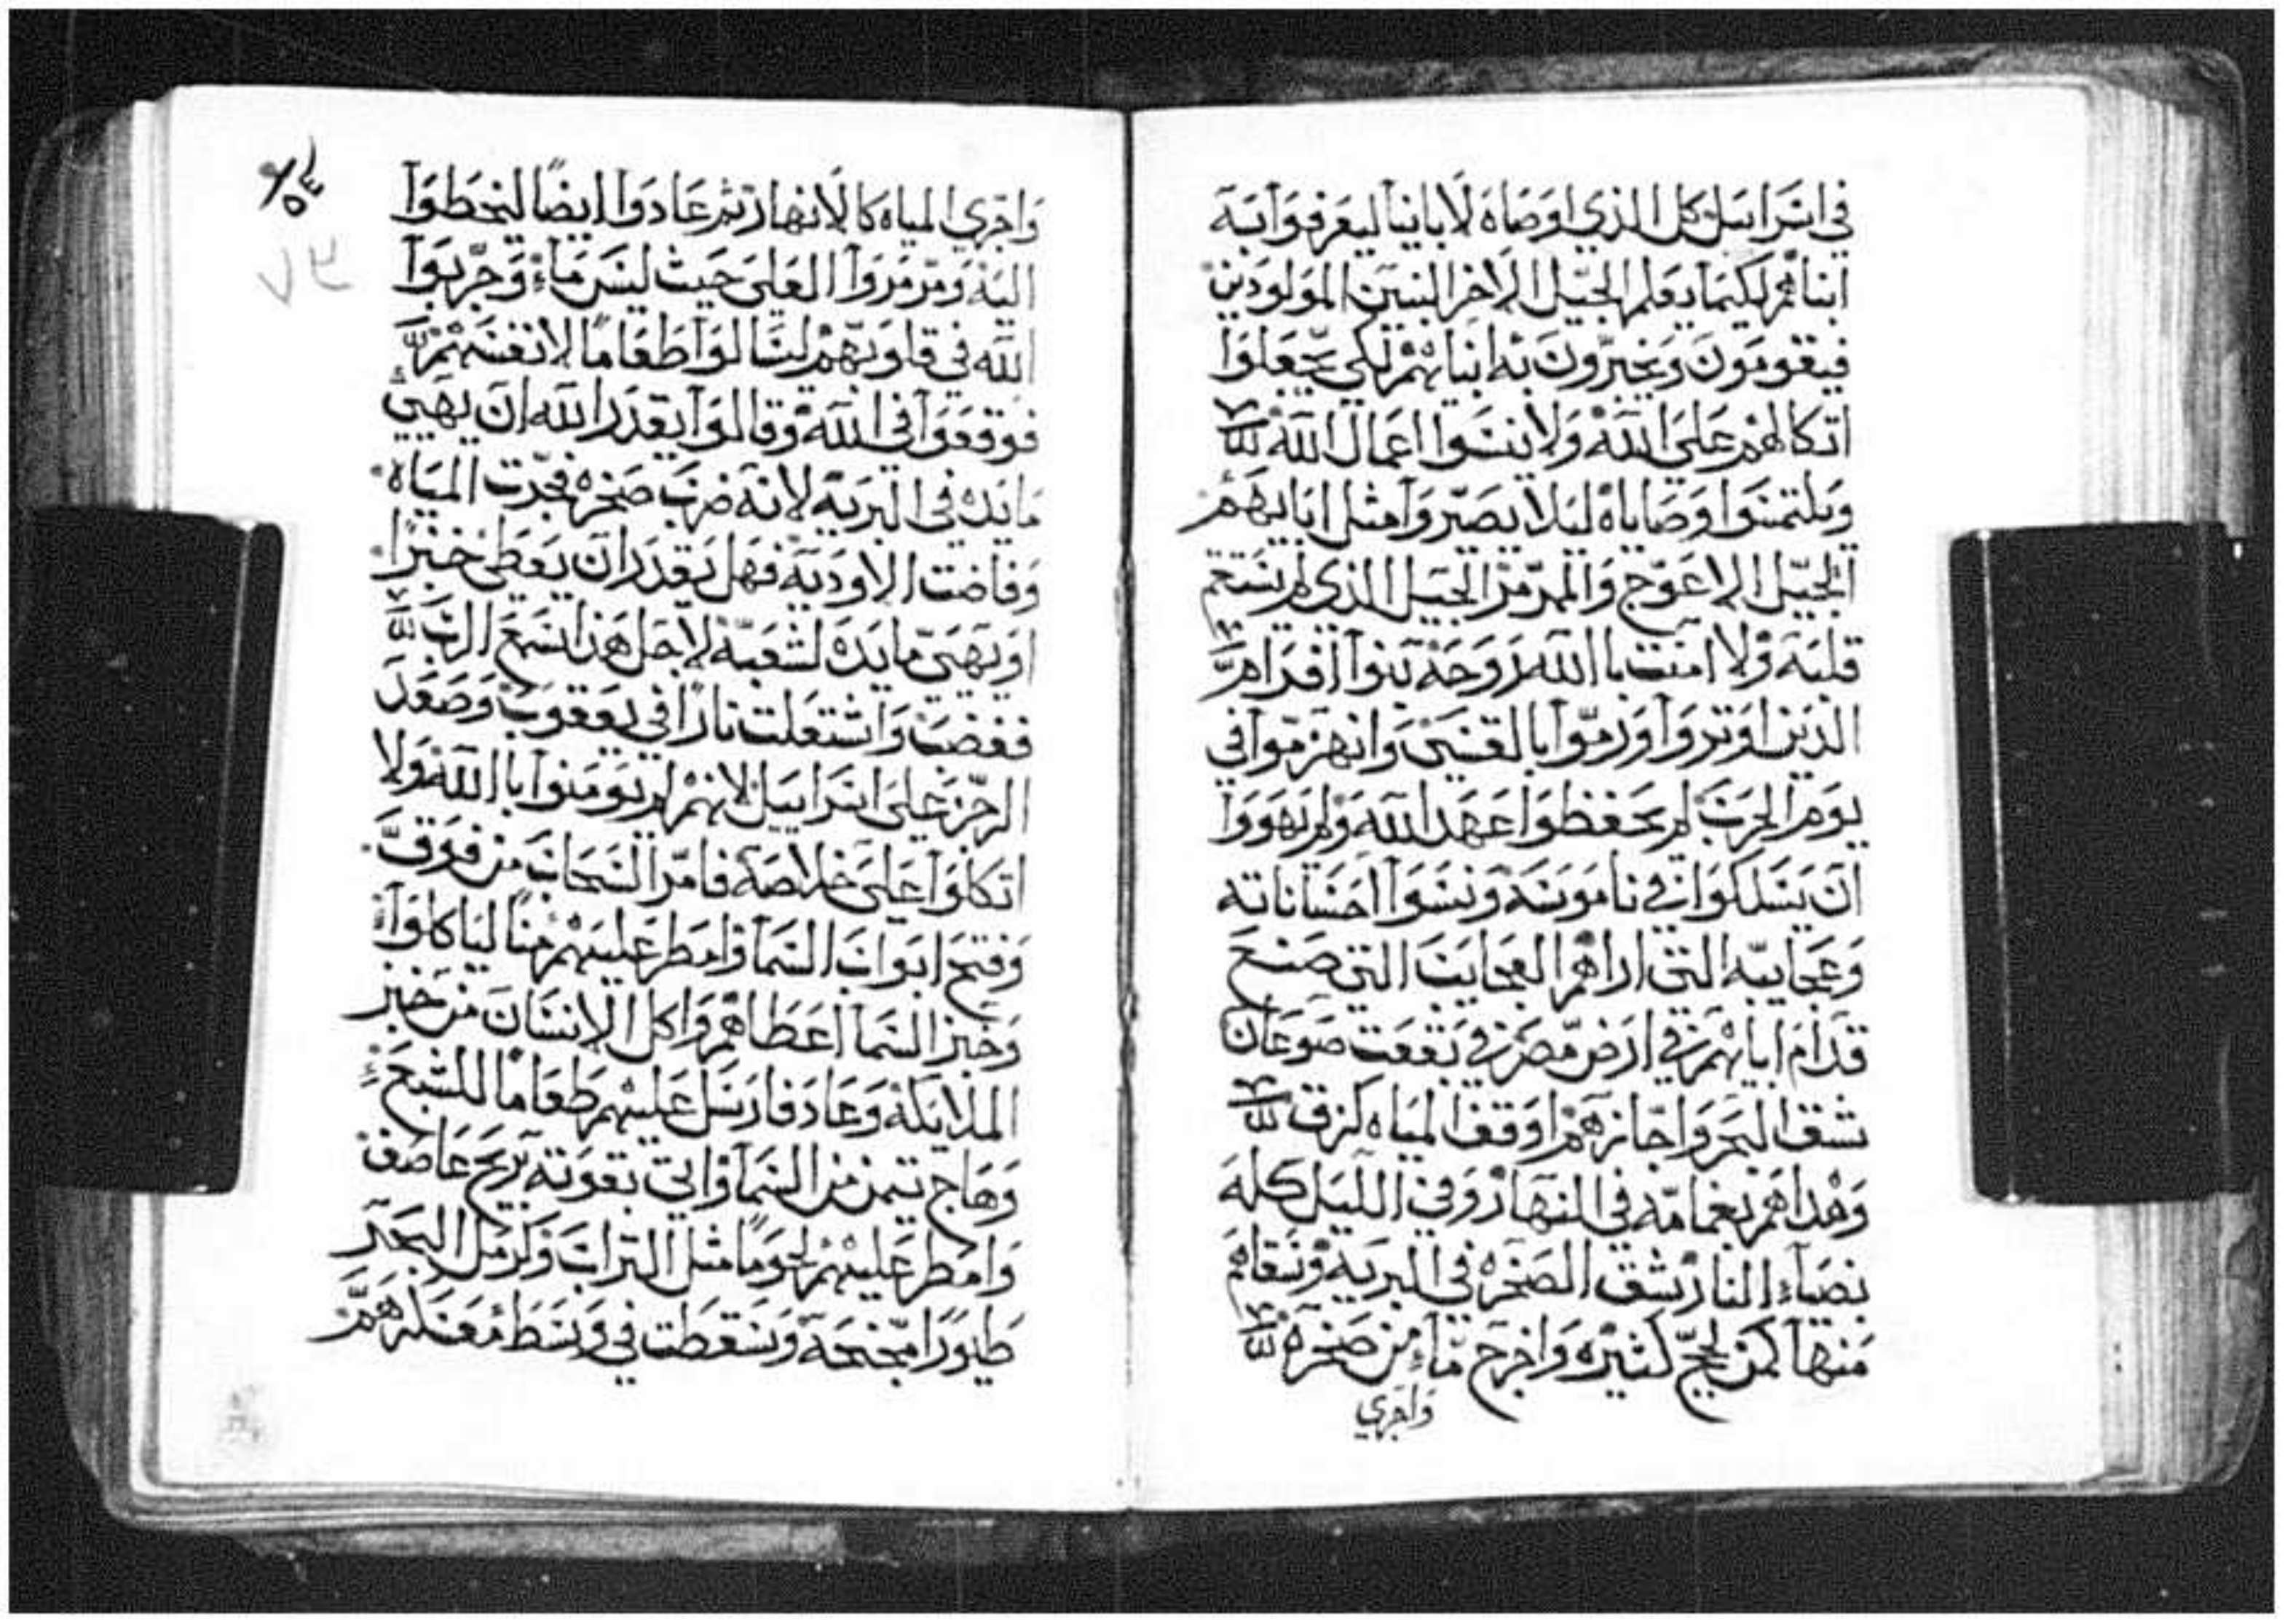 في اسراييل كل الذي اوصاه لاباينا ليعرفوا به
ابناهم لكيما يعلم الجيل الاخر البنين المولودين
فيقومون ويخبرون به ابناهم لكي يجعلوا
اتكالهم على الله ولا ينسوا اعمال الله
ويلتمسوا وصاياه ليلا يصيروا مثل اباييهم
الجيل الاعوج والمرمر الجيل الذي لم يستقم
قلبه ولا امنت باالله روحه بنوا افرام
الذين اوتروا ورموا بالقسي وانهزموا في
يوم الحرب لم يحفظوا عهد الله ولم يهووا
ان يسلكوا في ناموسه ونسوا احساناته
وعجايبه التي اراهم العجايب التي صنع
قدام اباهم في ارض مصر في بقعت صوعان
شق البحر واجازهم اوقف المياه كزق
وهداهم بغمامه في النهار وفي الليل كله
بضياء النار شق الصخره في البريه وسقاهم
منها كمن لجج كثيره واخرج ماء من صخره
واجري
٥٤
٧٢
واجري المياه كالانهار ثم عادوا ايضا ليخطوا
اليه ومرمروا العلي حيث ليس ماء وجربوا
الله في قلوبهم ليسالوا طعاما لانفسهم
فوقعوا في الله وقالوا يقدر الله ان يهيي
مايده في البريه لانه ضرب صخره فجرت المياه
وفاضت الاوديه فهل يقدر ان يعطي خبزا
او يهيي مايده لشعبه لاجل هذا سمع الرب
فغضب واشتعلت نارا في يعقوب وصعد
الرجز على اسراييل لانهم لم يومنوا باالله ولا
اتكلوا على خلاصه فامر السحاب من فوق
وفتح ابواب السما وامطر عليهم منا لياكلوا
وخبز السما اعطاهم واكل الانسان من خبز
الملايكه وعاد فارسل عليهم طعاما للشبع
وهاج تيمن من السما واتى بقوته بريح عاصف
وامطر عليهم لحوما مثل التراب وكرمل البحر
طيورا مجنحه وسقطت في وسط معسكرهم